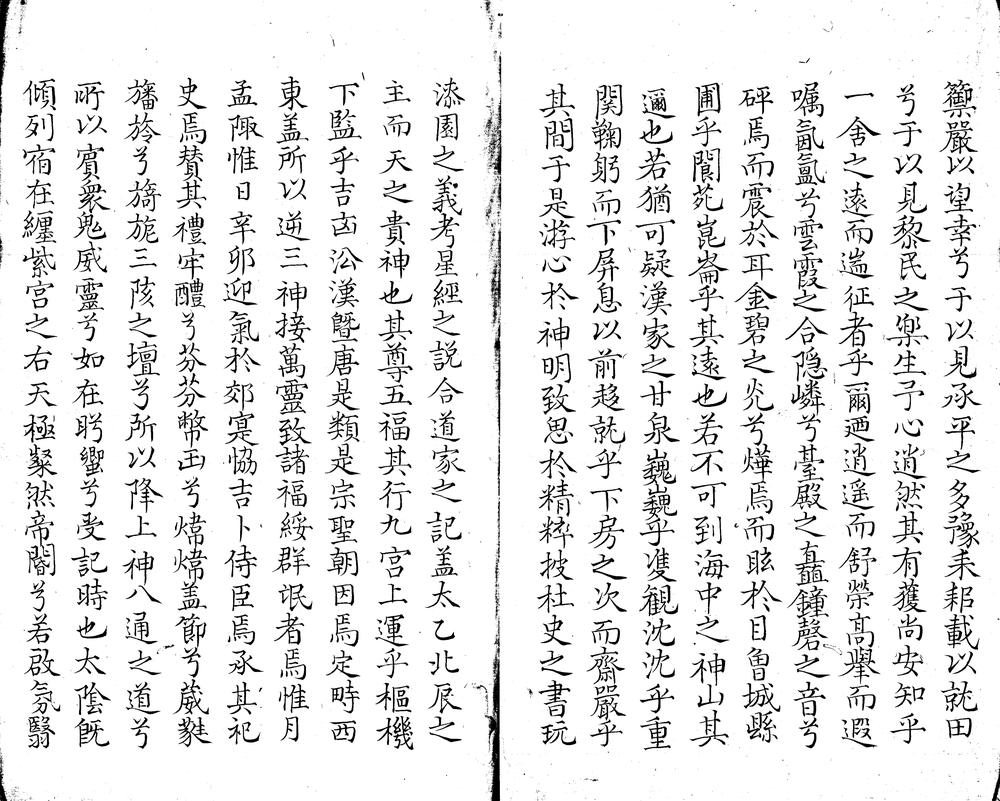 籞嚴以望幸兮于以見承平之多豫耒耜載以就田
兮于以見黎民之樂生予心逌然其有獲尚安知乎
一舍之遠而遄征者乎爾迺逍遥而舒榮高舉而遐
嘱氤氲兮雲霞之合隐嶙兮䑓殿之矗鐘磬之音兮
砰焉而震於耳金碧之光兮燁焉而眩於目魯城縣
圃乎閬苑崑崙乎其遠也若不可到海中之神山其
邇也若猶可疑漢家之甘泉巍巍乎䨇觀沈沈乎重
関鞠躬而下屏息以前趍就乎下房之次而齋嚴乎
其間于是游心於神明致思於精粹披柱史之書玩
漆園之義考星經之説合道家之記盖太乙北辰之
主而天之貴神也其尊五福其行九宫上運乎樞機
下監乎吉凶㳂漢曁唐是類是宗聖朝因焉定時西
東盖所以逆三神接萬靈致諸福綏群氓者焉惟月
孟陬惟日辛卯迎氣於郊寔協吉卜侍臣焉承其祀
史焉賛其禮牢醴兮芬芬幣玉兮煒煒盖節兮葳蕤
旛旍兮旖旎三陔之壇兮所以降上神八通之道兮
所以賓衆鬼威靈兮如在肸蠁兮受記時也太陰旣
傾列宿在纒紫宫之右天極粲然帝閽兮若啟氛翳